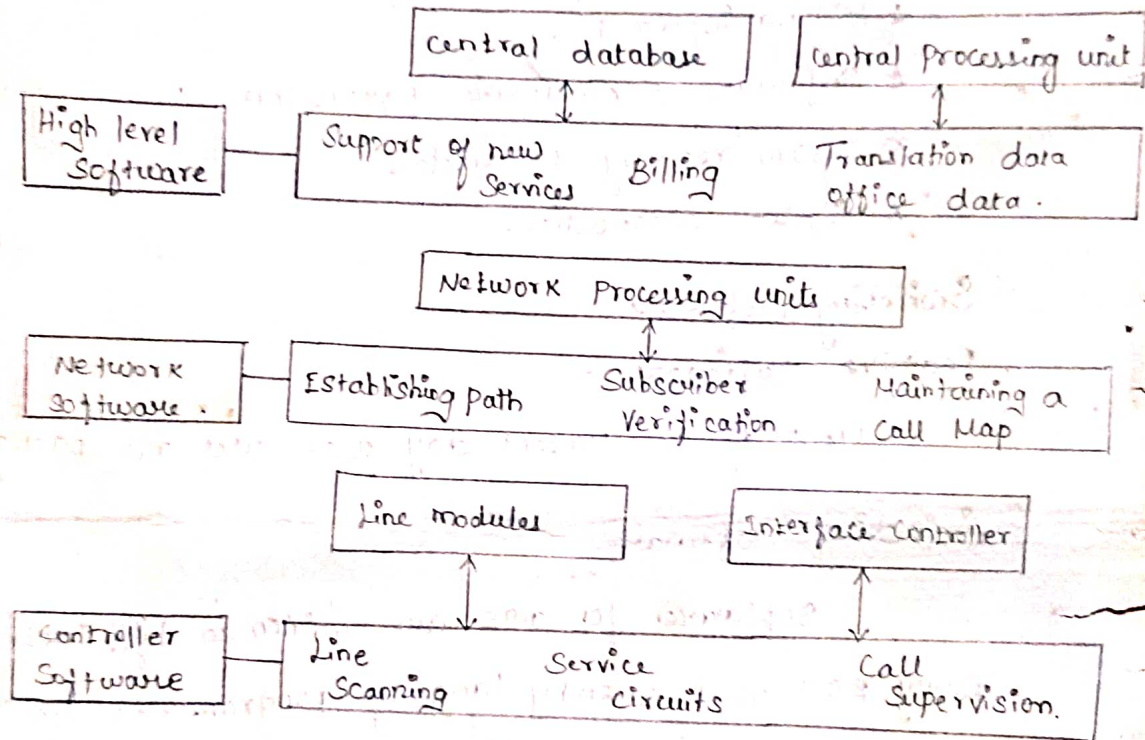 Central database
Central Processing unit
High level
Software
Support of new
Services
Billing
Translation data
office data.
Network Processing units
Network
Software.
Establishing Path
Subscriber
Verification.
Maintaining a
Call Map
Line modules
Interface Controller
Controller
Software
Line
Scanning
Service
Circuits
Call
Supervision.